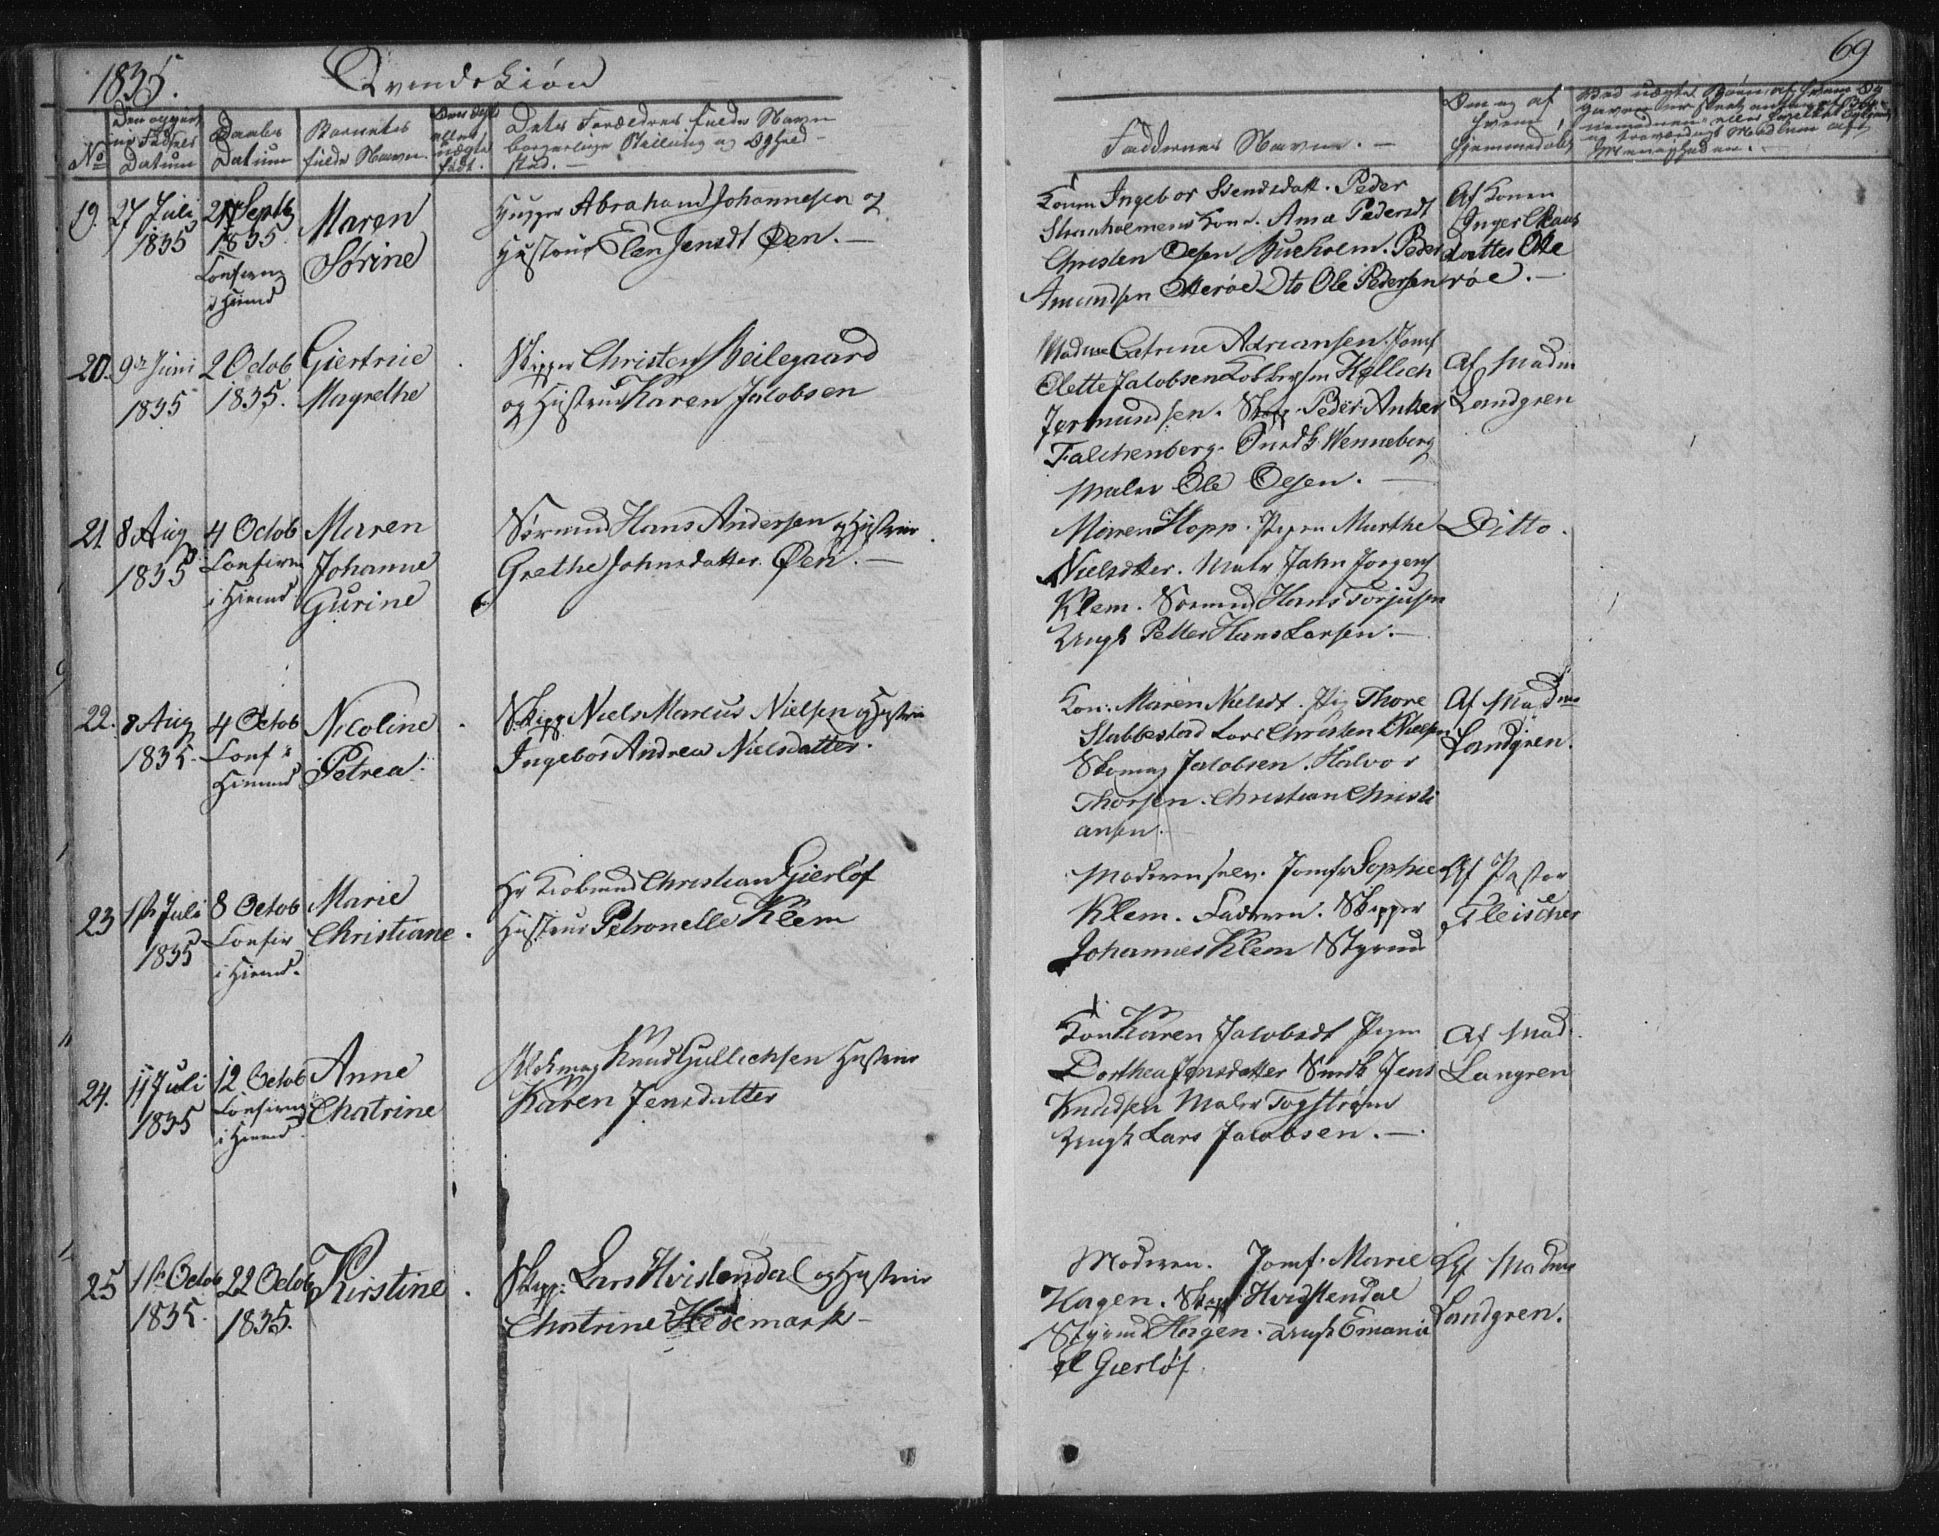 1835.
Qvindekiøn
69
No
Den opgivne Fødsels Datum
Daabs Datum
Barnets fulde Navn.
Om ægte eller uægte født.
Dets Forældres fulde Navn borgerlige Stilling og Opholdsted. —
Faddernes Navne. —
Om og af hvem hjemmedøbt
19. 27 Juli
1835
21 Septb
1835.
Confirm
i Hiemd
Maren
Sørine
Huusm Abraham Johannesen og
Hustrue Elen Jensdt Øen. —
Konen Ingebor Svendsdatt. Peder
Kone. Anne Pedersdt
Christen Oesen Bueholm. Peder
Amundsen Otterøe Dto Ole Pedersen
Af Konen
Inger Claus
datter Otte
røe. —
20. 9de Juni
1835
2 Octob
1835.
Giertrue
Magrethe
Skipper Christen Beilegaard
og Hustrue Karen Jacobsen
Madme Catrine Adriansen. Jomf
Olette Jacobsen Kellich
Jermundsen. Skipp. Peder Anker
Falchenberg. Wenneberg
Maler Ole Oesen. —
Af Madm
Landgren
21 8 Aug
1835
4 Octob
Confirm
i Hiemd
Maren
Johanne
Gurine
Sørmand Hans Andersen og Hustrue
Grethe Johnsdatter. Øen. —
Maren Hopp. Pigen Marthe
Nielsdtter. Maler Jahn Jørgens
Klem. Sørmand Hans Torjusen
Ungk Petter Hans Larsen. —
Ditto.
22. 8 Aug
1835.
4 Octob
Conf i
Hiemmd
Nicoline
Petrea.
Skipp Niels Marcus Nielsen og Hustrue
Ingebor Andrea Nielsdatter.
Kon. Maren Nielsdt. Pig Thore
Stubbestad Lors Christen Nielsen
Skomag Jacobsen. Halvor
Thorsen. Christian Christi
ansen.
Af Madme
Landgren.
23 1ste Juli
1835
8 Octob
Confir
i Hiemd.
Marie
Christiane.
Hr Kiobmand Christian Gierløf
Hustrue Petronelle Klem
Moderen selv. Jomfr Sophie
Klem. Faderen. Skipper
Johannes Klem Styrmd
Af Pastor
Fleischer
24. 11 Juli
1835
12 Octob
Confirm
i Hiemd
Anne
Chatrine
Knud Gullichsen Hustrue
Karen Jensdatter
Kon Karen Jacobsdt Pigen
Dorthea Jensdatter Jens
Knudsen Maler Togstrøm
Ungk Lars Jacobsen. —
Af Mad.
Langren
25 1ste Octob
1835.
22 Octob
1835.
Kirstine.
Skipp: Lars Hvistendal og Hustrue
Chatrine Hedemark —
Moderen. Jomf. Marie
Hagen. Skipp Hvidstendal
Styrmd Hagen. Ungk Emanu
el Gierløf.
Af Madme
Landgren.